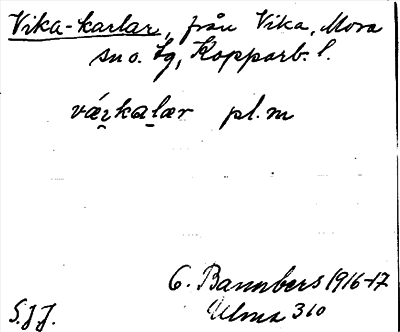 Vika-karlar, från Vika, Mora
sn o. tg, Kopparb. l.
vá̱rka̱lær pl. m
G. Bannbers 1916-17
S.J.J. Ulma 310